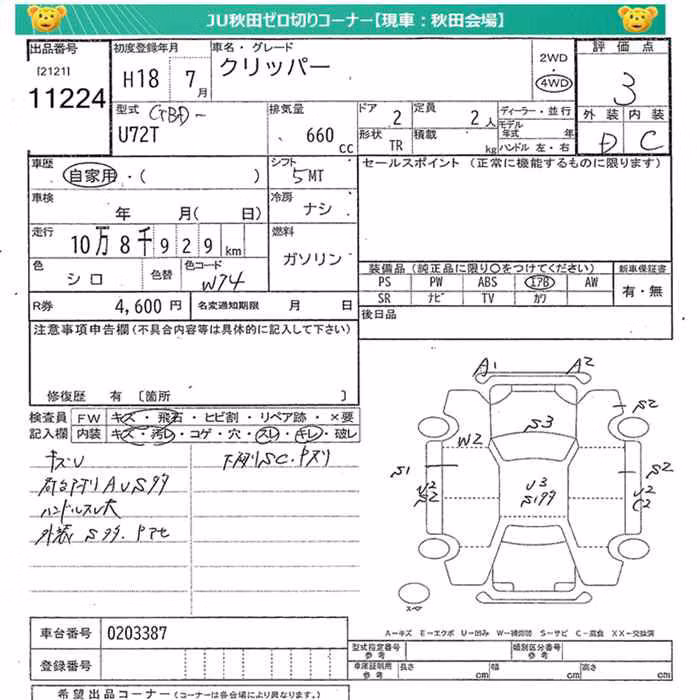 JU秋田ゼロ切りコーナー【現車：秋田会場】
出品番号
[2121]
11224
初度登録年月
H18 7月
車名・グレード
クリッパー
2WD
4WD
評価点
3
外装 内装
D C
型式 GBD-
U72T
排気量
660 cc
ドア 2
定員 2人
形状 TR
積載 kg
ディーラー・並行
モデル年式 年
ハンドル 左・右
車歴
自家用・( )
シフト
5MT
セールスポイント (正常に機能するものに限ります)
車検
年 月( 日)
冷房
ナシ
走行
10万8千929km
燃料
ガソリン
色
シロ
色替
色コード
W74
装備品 (純正品に限り○をつけてください)
PS PW ABS エアB AW
SR ナビ TV カワ
新車保証書
有・無
R券 4,600円
名変通知期限 月 日
後日品
注意事項申告欄(不具合内容等は具体的に記入して下さい)
修復歴 有 [箇所 ]
検査員
記入欄
FW キズ・飛石・ヒビ割・リペア跡・×要
内装 キズ・汚レ・コゲ・穴・スレ・キレ・破レ
キズU
荷台アオリAUSサビ
ハンドルスレ大
外装 Sサビ.
下廻りSC.
A1 A2
S2
S3
W2
S1
S2
U2
S2
U3
U2
C2
スペア
A－キズ E－エクボ U－凹み W－補修跡 S－サビ C－腐食 XX－交換済
車台番号 0203387
登録番号
型式指定番号
参考
類別区分番号
参考
車庫証明用
参考
長さ cm
幅 cm
高さ cm
希望出品コーナー(コーナーは各会場により異なります。)